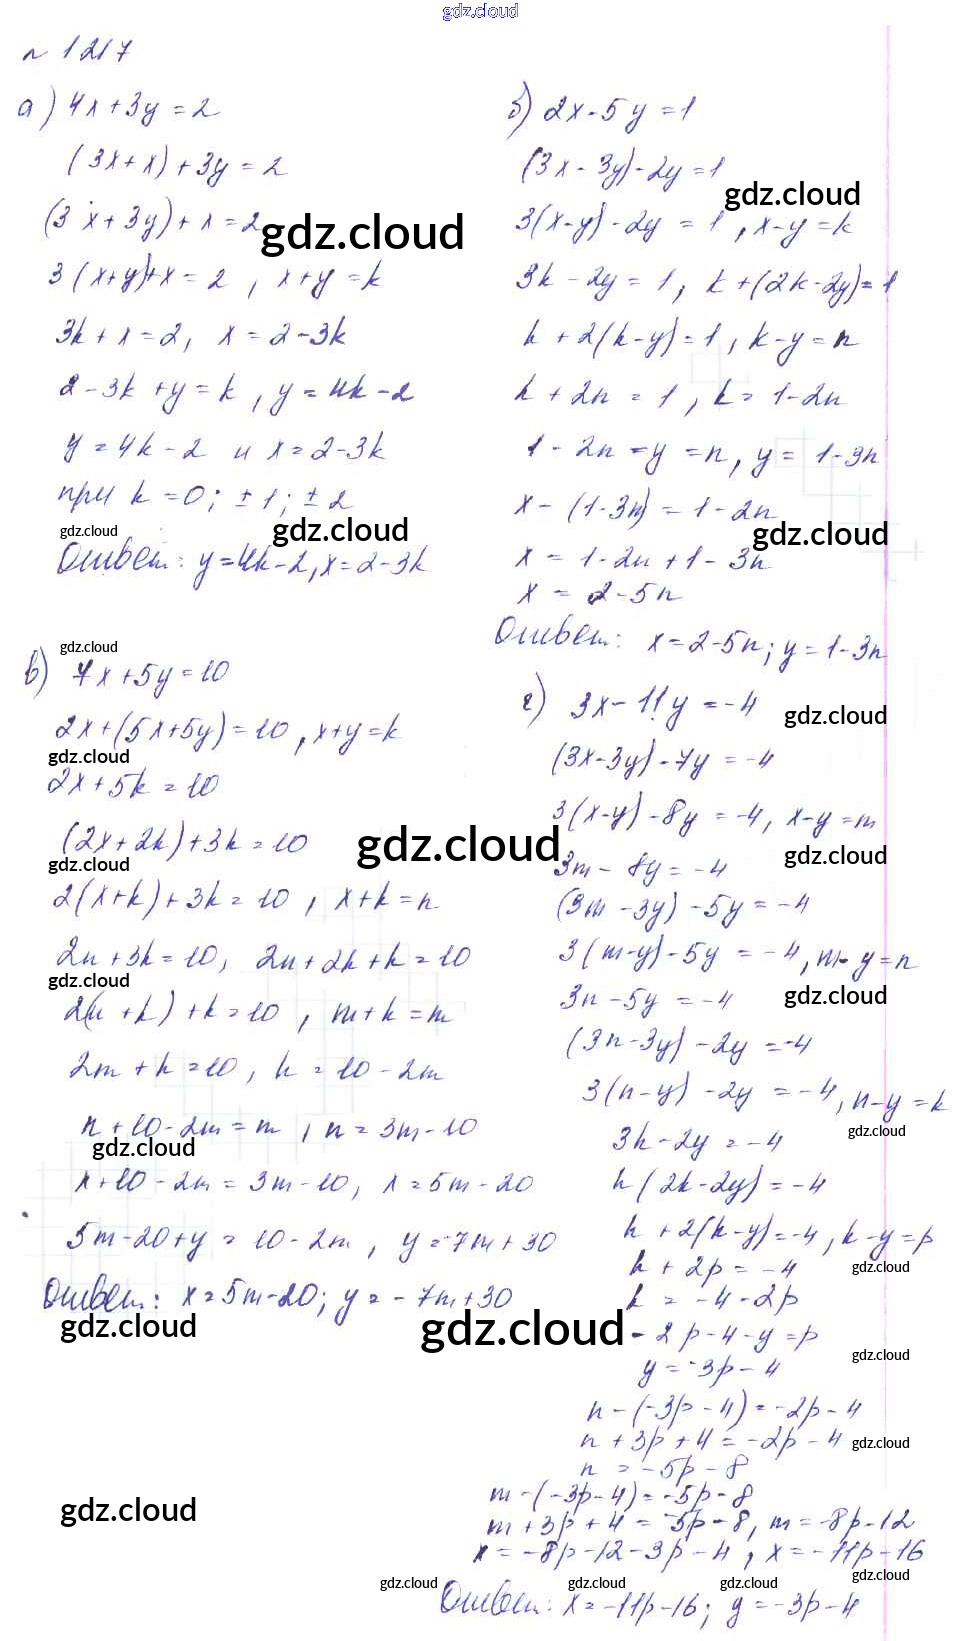 gdz.cloud
№ 1217
а) 4x+3y=2
(3x+x)+3y=2
(3x+3y)+x=2
gdz.cloud
3(x+y)+x=2, x+y=k
3k+x=2, x=2-3k
2-3k+y=k, y=4k-2
y=4k-2 и x=2-3k
при k=0; ±1; ±2
gdz.cloud
gdz.cloud
Ответ: y=4k-2, x=2-3k
б) 2x-5y=1
(3x-3y)-2y=1
gdz.cloud
3(x-y)-2y=1, x-y=k
3k-2y=1, k+(2k-2y)=1
k+2(k-y)=1, k-y=n
k+2n=1, k=1-2n
1-2n-y=n, y=1-3n
x-(1-3n)=1-2n
gdz.cloud
x=1-2n+1-3n
x=2-5n
Ответ: x=2-5n; y=1-3n
gdz.cloud
в) 7x+5y=10
2x+(5x+5y)=10, x+y=k
gdz.cloud
2x+5k=10
(2x+2k)+3k=10
gdz.cloud
gdz.cloud
2(x+k)+3k=10, x+k=n
2n+3k=10, 2n+2k+k=10
gdz.cloud
2(n+k)+k=10, n+k=m
2m+k=10, k=10-2m
n+10-2m=m, n=3m-10
gdz.cloud
x+10-2m=3m-10, x=5m-20
5m-20+y=10-2m, y=-7m+30
Ответ: x=5m-20; y=-7m+30
gdz.cloud
gdz.cloud
г) 3x-11y=-4
gdz.cloud
(3x-3y)-7y=-4
3(x-y)-8y=-4, x-y=m
gdz.cloud
3m-8y=-4
(3m-3y)-5y=-4
3(m-y)-5y=-4, m-y=n
gdz.cloud
3n-5y=-4
(3n-3y)-2y=-4
3(n-y)-2y=-4, n-y=k
gdz.cloud
3k-2y=-4
k(2k-2y)=-4
k+2(k-y)=-4, k-y=p
gdz.cloud
k+2p=-4
k=-4-2p
-2p-4-y=p
gdz.cloud
y=-3p-4
n-(-3p-4)=-2p-4
n+3p+4=-2p-4
gdz.cloud
n=-5p-8
m-(-3p-4)=-5p-8
gdz.cloud
m+3p+4=-5p-8, m=-8p-12
x=-8p-12-3p-4, x=-11p-16
gdz.cloud
gdz.cloud gdz.cloud gdz.cloud
Ответ: x=-11p-16; y=-3p-4